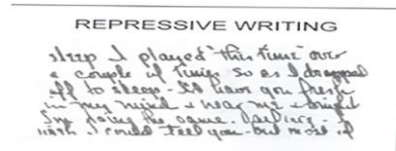 REPRESSIVE WRITING
sleep I played "this time" over
a couple of times so as I dropped
off to sleep - I'd have you fresh
in my mind & hear me &
I'm doing the same. Darling - I
wish I could feel you - but more of